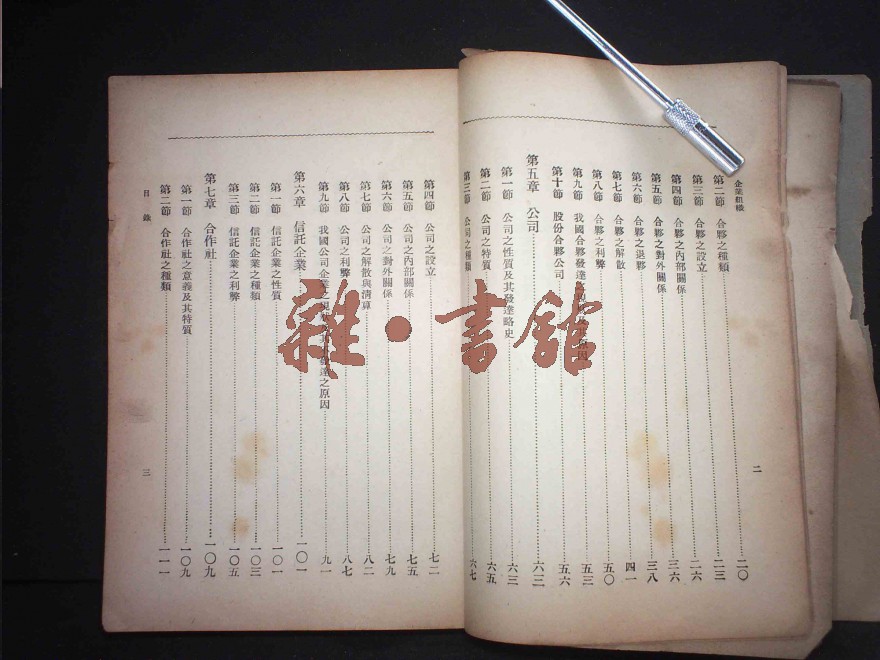 企業組織
二
第二節 合夥之種類 二〇
第三節 合夥之設立 二三
第四節 合夥之內部關係 二六
第五節 合夥之對外關係 三六
第六節 合夥之退夥 三八
第七節 合夥之解散 四一
第八節 合夥之利弊 五〇
第九節 我國合夥發達 及 原因 五三
第十節 股份合夥公司 五六
第五章 公司 六三
第一節 公司之性質及其發達略史 六三
第二節 公司之特質 六五
第三節 公司之種類 六七
第四節 公司之設立 七二
第五節 公司之內部關係 七五
第六節 公司之對外關係 七九
第七節 公司之解散與清算 八二
第八節 公司之利弊 八七
第九節 我國公司企業之 發達之原因 九一
第六章 信託企業 一〇一
第一節 信託企業之性質 一〇一
第二節 信託企業之種類 一〇三
第三節 信託企業之利弊 一〇五
第七章 合作社 一〇九
第一節 合作社之意義及其特質 一〇九
第二節 合作社之種類 一一一
目錄
三
雜·書館